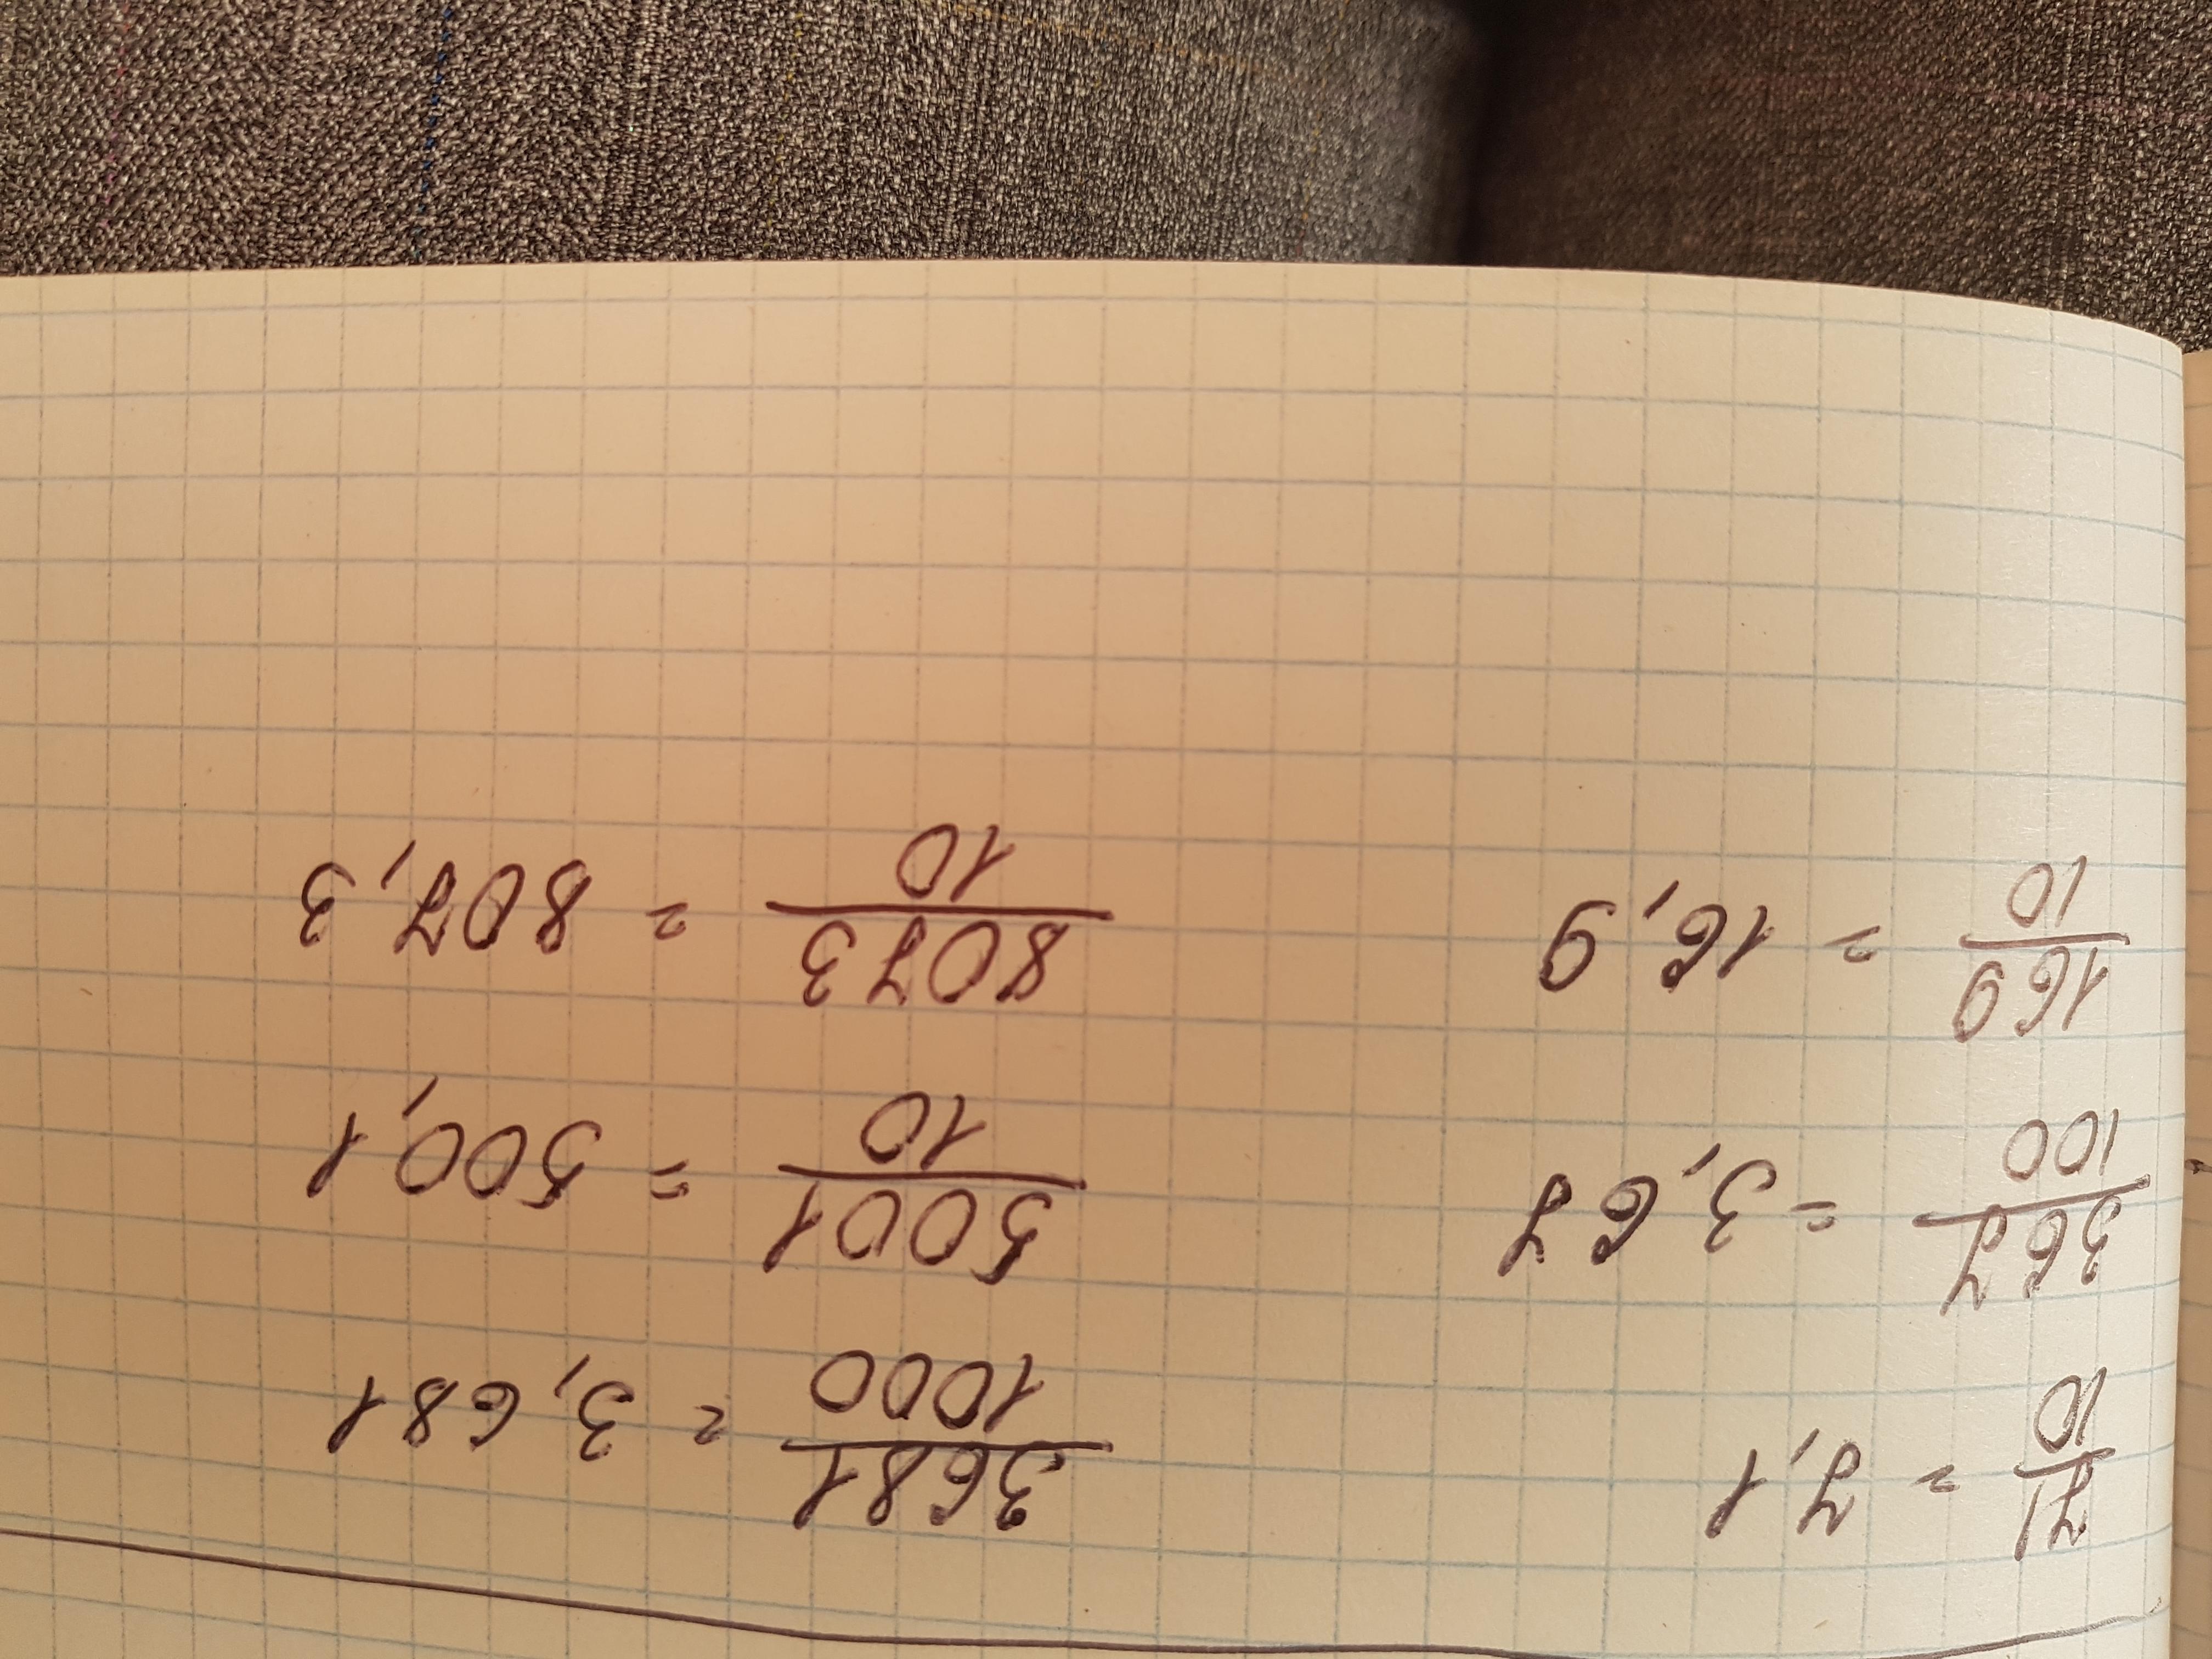 71/10 = 7,1
367/100 = 3,67
169/10 = 16,9
3681/1000 = 3,681
5001/10 = 500,1
8073/10 = 807,3